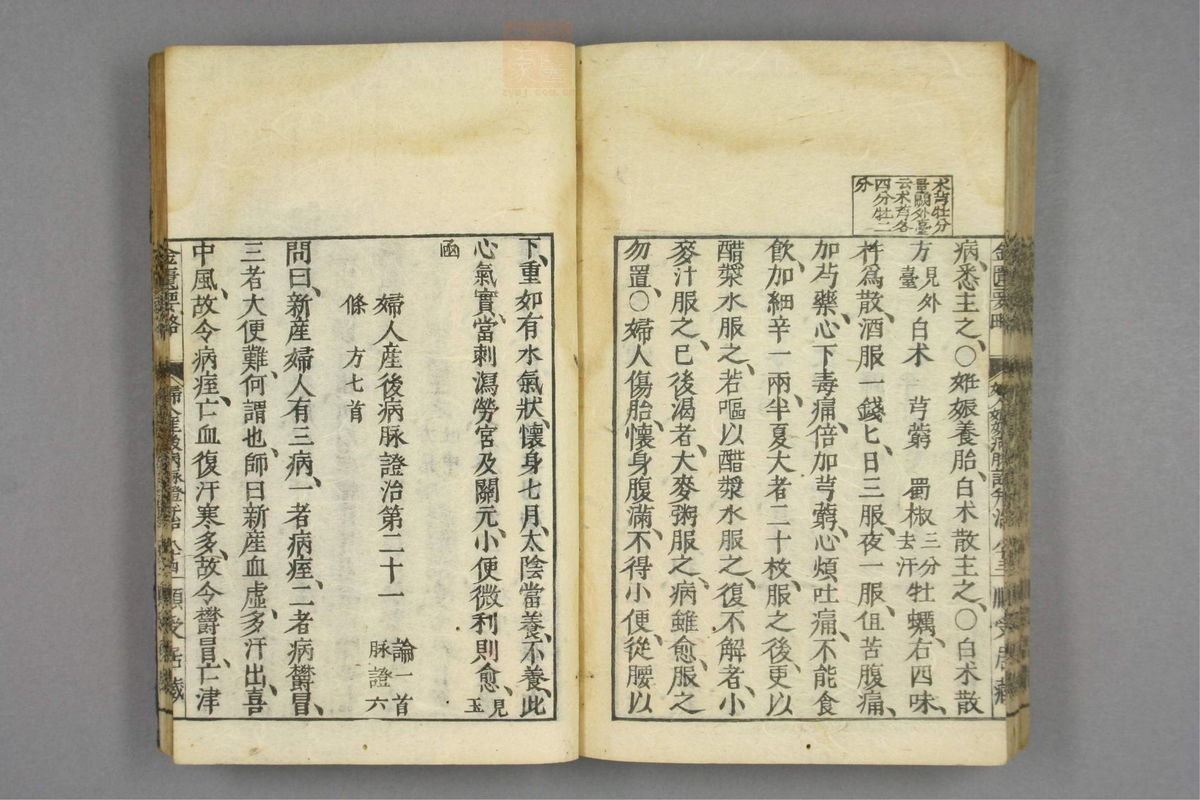 朮芎牡分
量闕外臺
云朮芎各
四分牡二
分
病、悉主之、○妊娠養胎、白朮散主之、○白朮散
方見外臺白朮 芎藭 蜀椒三分去汗牡蠣、右四味、
杵爲散、酒服一錢匕、日三服、夜一服、但苦腹痛、
加芍藥、心下毒痛、倍加芎藭、心煩吐痛、不能食
飲、加細辛一兩、半夏大者二十枚、服之後、更以
醋漿水服之、若嘔以醋漿水服之、復不解者、小
麥汁服之、已後渴者、大麥粥服之、病雖愈、服之
勿置、○婦人傷胎、懷身腹滿、不得小便、從腰以
下重、如有水氣狀、懷身七月、太陰當養、不養、此
心氣實、當刺瀉勞宮及關元、小便微利則愈、見玉
函
婦人産後病脉證治第二十一 論一首 脉證六
條 方七首
問曰、新産婦人有三病、一者病痙、二者病鬱冒、
三者大便難、何謂也、師曰新産血虛、多汗出、喜
中風、故令病痙、亡血復汗寒多、故令鬱冒、亡津
金匱要略
婦人産後病脉證治